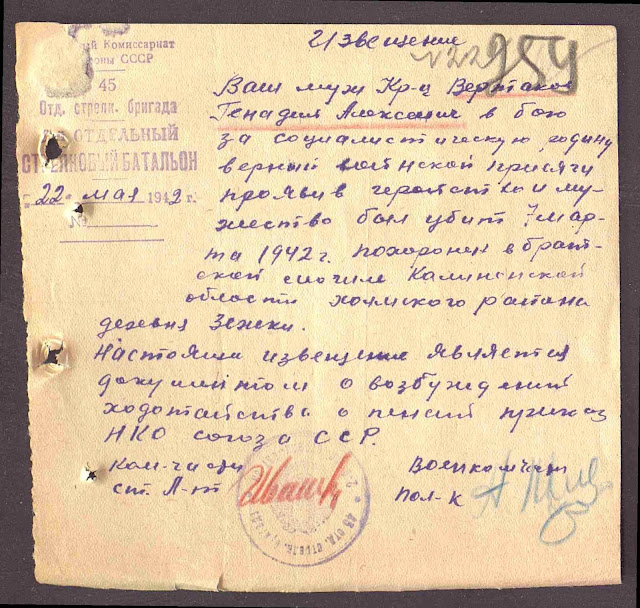 Извещение
№22 254
ный Комиссариат
роны СССР
45
Отд. стрелк. бригада
ОТДЕЛЬНЫЙ
СТРЕЛКОВЫЙ БАТАЛЬОН
„22" мая 1942 г.
№
Ваш муж Кр-ц Вертаков
Генадий Алексеевич в бою
за социалистическую родину
верный воинской присяги
проявив геройство и му-
жество был убит 7 мар-
та 1942 г. похоронен в брат-
ской могиле Калиненской
области холмского района
деревня Зенски.
Настоящим извещение является
документом о возбуждений
ходотайства о пенсий приказ
НКО союза ССР.
Ком. части Военком части
ст. Л-нт Ивашк пол-к
45 ОТД. СТРЕЛК.